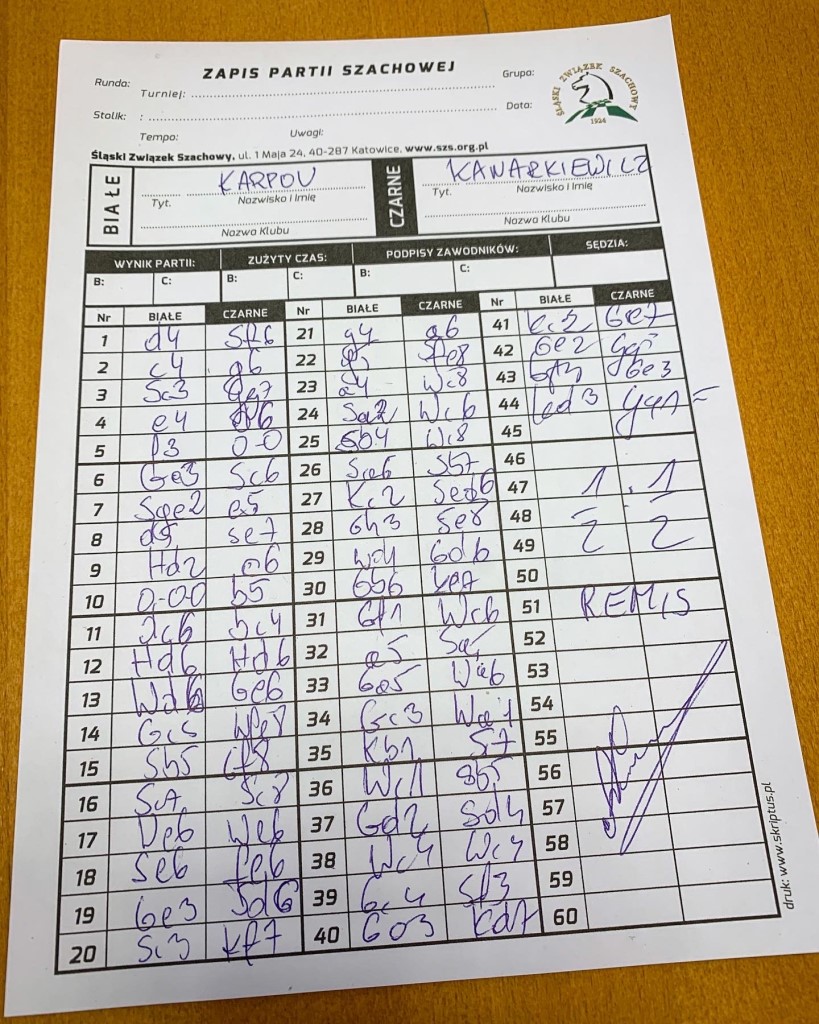 ZAPIS PARTII SZACHOWEJ
Runda: Turniej: Grupa:
Stolik: : Data:
Tempo: Uwagi:
ŚLĄSKI ZWIĄZEK SZACHOWY
1924
Śląski Związek Szachowy, ul. 1 Maja 24, 40-287 Katowice, www.szs.org.pl
BIAŁE KARPOV CZARNE KANARKIEWICZ
Tyt. Nazwisko i Imię Tyt. Nazwisko i Imię
Nazwa Klubu Nazwa Klubu
WYNIK PARTII: ZUŻYTY CZAS: PODPISY ZAWODNIKÓW: SĘDZIA:
B: C: B: C: B: C:
Nr BIAŁE CZARNE Nr BIAŁE CZARNE Nr BIAŁE CZARNE
1 d4 Sf6 21 g4 a6 41 Kc2 Ge7
2 c4 g6 22 g5 Se8 42 Ge2
3 Sc3 Gg7 23 a4 Wc8 43 Gf3 Ge3
4 e4 d6 24 Sa2 Wc6 44
5 f3 0-0 25 Sb4 Wc8 45
6 Ge3 Sc6 26 Sb7 46
7 Sge2 e5 27 Kc2 47 1 . 1
8 d5 Se7 28 Gh3 Se8 48
9 Hd2 a6 29 Wd1 Gd6 49 2 2
10 0-0-0 b5 30 Gb6 Ke7 50
11 31 Gf1 Wc6 51 REMIS
12 Hd6 Hd6 32 a5 52
13 Wd6 Ge6 33 Ge5 53
14 Gc5 34 Gc3 54
15 Sb5 35 Kb1 55
16 Sc7 Sc8 36 Wc1 56
17 We6 37 Gd2 Sd4 57
18 Se6 fe6 38 Wc4 Wc4 58
19 Ge3 Sd6 39 Gc4 Sf3 59
20 Sc3 Kf7 40 Kd7 60
druk: www.skriptus.pl